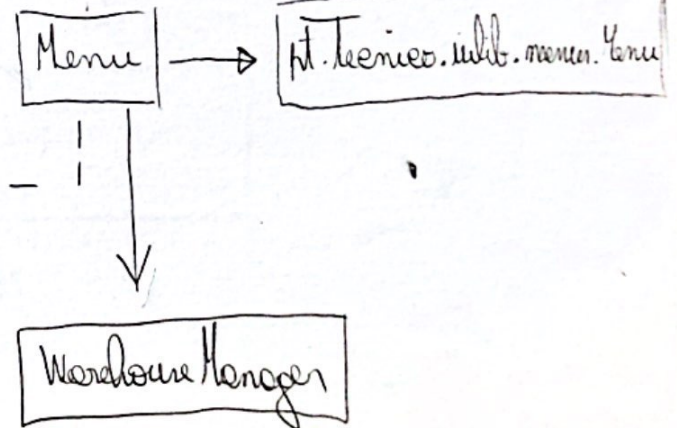 Menu
pt.Tecnico.uilib.menus.Menu
WarehouseManager